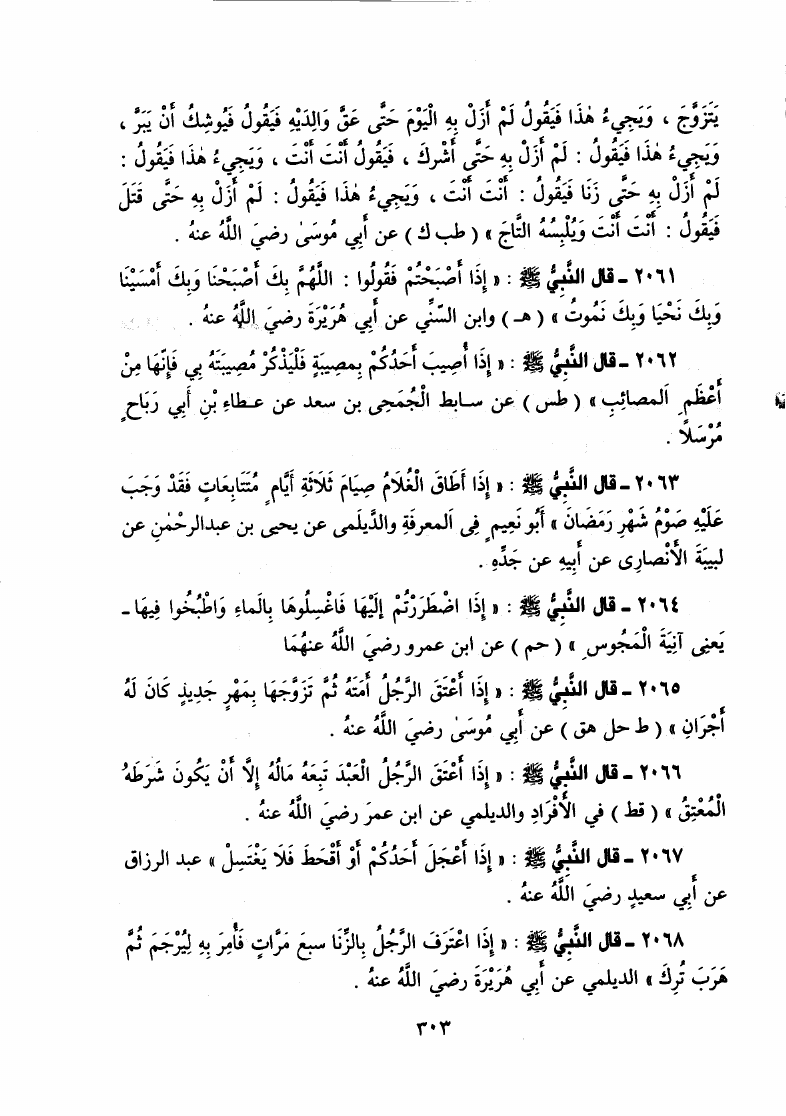 يَتَزَوَّجَ ، وَيَجِيءُ هٰذَا فَيَقُولُ لَمْ أَزَلْ بِهِ الْيَوْمَ حَتَّى عَقَّ وَالِدَيْهِ فَيَقُولُ فَيُوشِكُ أَنْ يَبَرَّ ،
وَيَجِيءُ هٰذَا فَيَقُولُ : لَمْ أَزَلْ بِهِ حَتَّى أَشْرَكَ ، فَيَقُولُ أَنْتَ أَنْتَ ، وَيَجِيءُ هٰذَا فَيَقُولُ :
لَمْ أَزَلْ بِهِ حَتَّى زَنَا فَيَقُولُ : أَنْتَ أَنْتَ ، وَيَجِيءُ هٰذَا فَيَقُولُ : لَمْ أَزَلْ بِهِ حَتَّى قَتَلَ
فَيَقُولُ : أَنْتَ أَنْتَ وَيُلْبِسُهُ التَّاجَ » ( طب ك ) عن أَبِي مُوسَىٰ رضيَ اللَّهُ عنهُ .
٢٠٦١ ـ قال النَّبِيُّ ﷺ : « إِذَا أَصْبَحْتُمْ فَقُولُوا : اللَّهُمَّ بِكَ أَصْبَحْنَا وَبِكَ أَمْسَيْنَا
وَبِكَ نَحْيَا وَبِكَ نَمُوتُ » ( هـ ) وابن السّنِّي عن أَبي هُرَيْرَةَ رضيَ اللَّهُ عنهُ .
٢٠٦٢ ـ قال النَّبِيُّ ﷺ : « إِذَا أُصِيبَ أَحَدُكُمْ بِمصِيبَةٍ فَلْيَذْكُرْ مُصِيبَتَهُ بِي فَإِنَّهَا مِنْ
أَعْظَمِ المصائِبِ » ( طس ) عن سابط الْجُمَحِى بن سعد عن عطاءِ بْنِ أَبي رَبَاحٍ
مُرْسَلاً .
٢٠٦٣ ـ قال النَّبِيُّ ﷺ : « إِذَا أَطَاقَ الْغُلَامُ صِيَامَ ثَلَاثَةِ أَيَّامٍ مُتَتَابِعَاتٍ فَقَدْ وَجَبَ
عَلَيْهِ صَوْمُ شَهْرِ رَمَضَانَ » أَبُو نَعِيمٍ فِى المعرفَةِ والدَّيلَمى عن يحيى بن عبدالرحْمٰنِ عن
لبيبَةَ الأَنْصارِى عن أَبيهِ عن جَدِّهِ .
٢٠٦٤ ـ قال النَّبِيُّ ﷺ : « إِذَا اضْطَرَرْتُمْ إِلَيْهَا فَاغْسِلُوهَا بِالمَاءِ وَاطْبُخُوا فِيهَا ـ
يَعنِى آنِيَةَ الْمَجُوسِ » ( حم ) عن ابن عمرو رضيَ اللَّهُ عنهُمَا
٢٠٦٥ ـ قال النَّبِيُّ ﷺ : « إِذَا أَعْتَقَ الرَّجُلُ أَمَتَهُ ثُمَّ تَزَوَّجَهَا بِمَهْرٍ جَدِيدٍ كَانَ لَهُ
أَجْرَانِ » ( ط حل هق ) عن أَبِي مُوسَىٰ رضيَ اللَّهُ عنهُ .
٢٠٦٦ ـ قال النَّبِيُّ ﷺ : « إِذَا أَعْتَقَ الرَّجُلُ الْعَبْدَ تَبِعَهُ مَالُهُ إِلَّا أَنْ يَكُونَ شَرَطَهُ
الْمُعْتِقُ » ( قط ) في الأَفْرَادِ والديلمي عن ابن عمرَ رضيَ اللَّهُ عنهُ .
٢٠٦٧ ـ قال النَّبِيُّ ﷺ : « إِذَا أَعْجَلَ أَحَدُكُمْ أَوْ أَقْحَطَ فَلَا يَغْتَسِلْ » عبد الرزاق
عن أَبِي سعيدٍ رضيَ اللَّهُ عنهُ .
٢٠٦٨ ـ قال النَّبِيُّ ﷺ : « إِذَا اعْتَرَفَ الرَّجُلُ بِالزِّنَا سبعَ مَرَّاتٍ فَأُمِرَ بِهِ لِيُرْجَمَ ثُمَّ
هَرَبَ تُرِكَ » الديلمي عن أَبِي هُرَيْرَةَ رضيَ اللَّهُ عنهُ .
٣٠٣